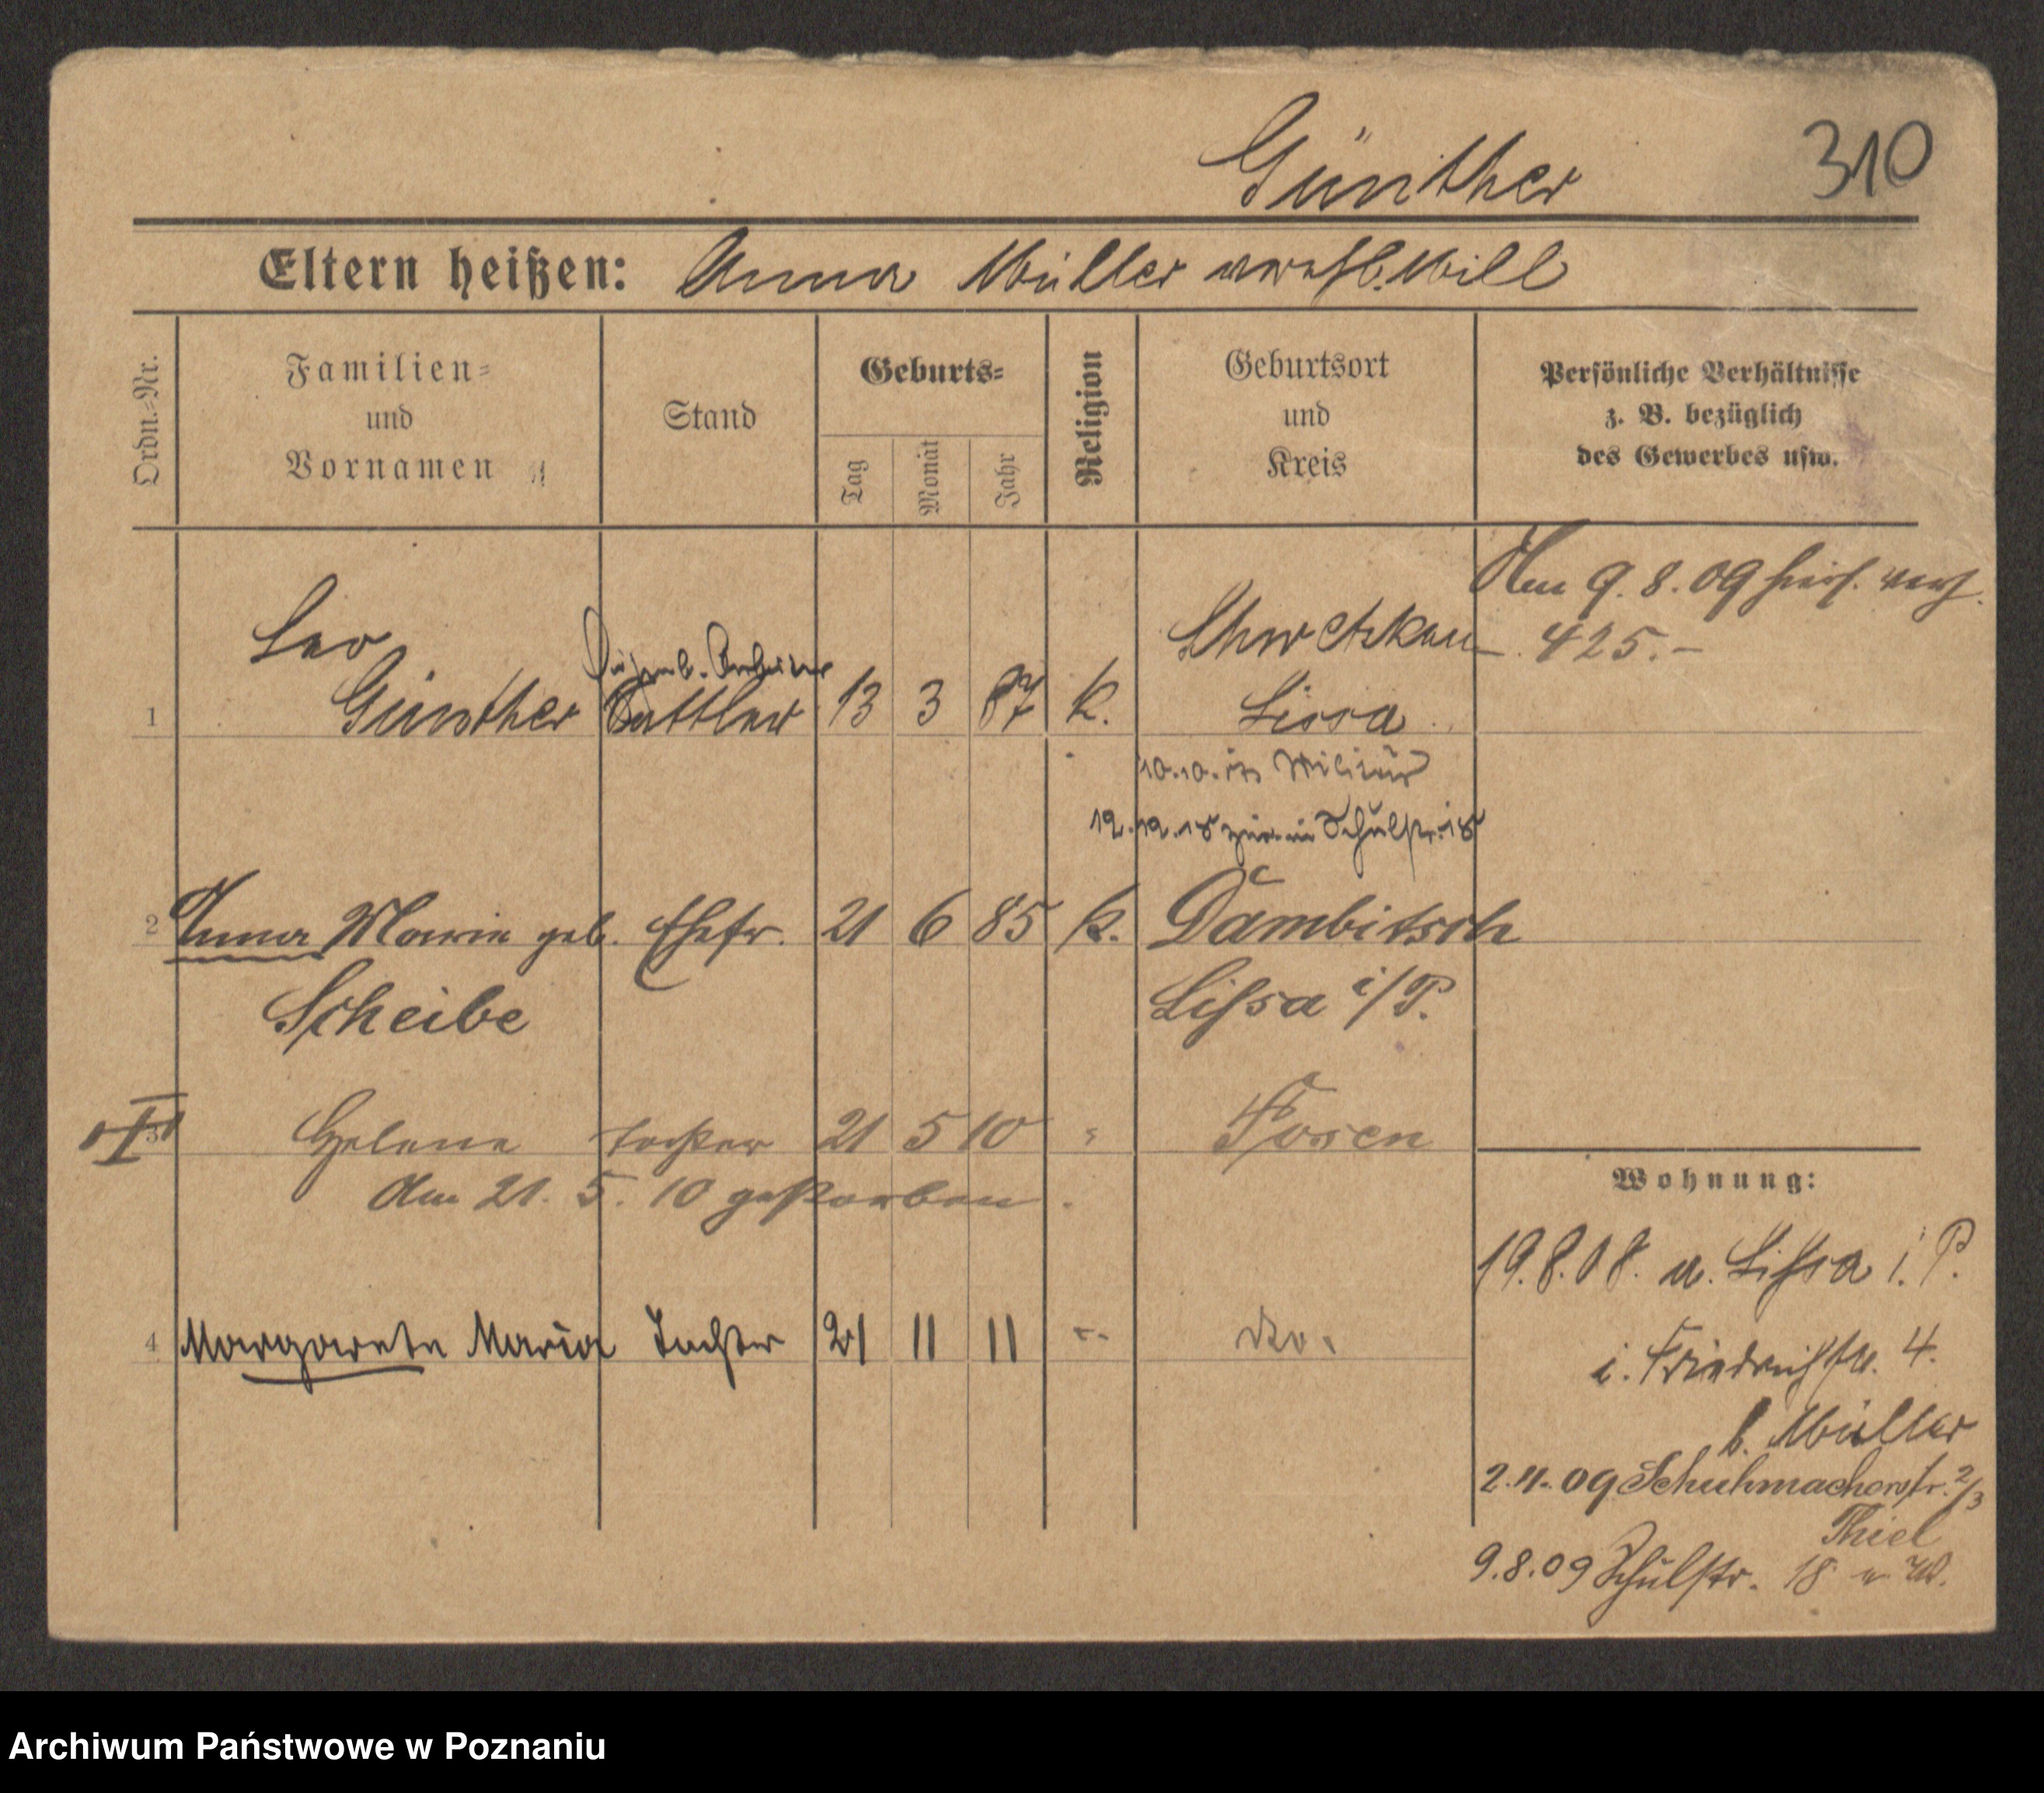 Günther 310
Eltern heißen: Anna Müller verehl. Will
Ordn.-Nr.
Familien-
und
Vornamen
Stand
Geburts-
Tag
Monat
Jahr
Religion
Geburtsort
und
Kreis
Persönliche Verhältnisse
z. B. bezüglich
des Gewerbes usw.
Am 9.8.09 hier verh.
425.-
Leo Schwetzkau
Arbeiter
1 Günther Sattler 13 3 87 k. Lissa
10.10. Militär
12.12.18 zur. in Schulstr. 18
2 Anna Marie geb. Ehefr. 21 6 85 k. Dambitsch
Scheibe Lissa i/P.
3 Helene Tochter 21 5 10 " Posen
Am 21. 5. 10 gestorben.
4 Margarete Maria Tochter 21 11 11 -- do.
Wohnung:
19.8.08. a. Lissa i. P.
i. Friedrichstr. 4.
b. Müller
2.11.09 Schuhmacherstr. 2/3
Thiel
9.8.09 Schulstr. 18 W.
Archiwum Państwowe w Poznaniu